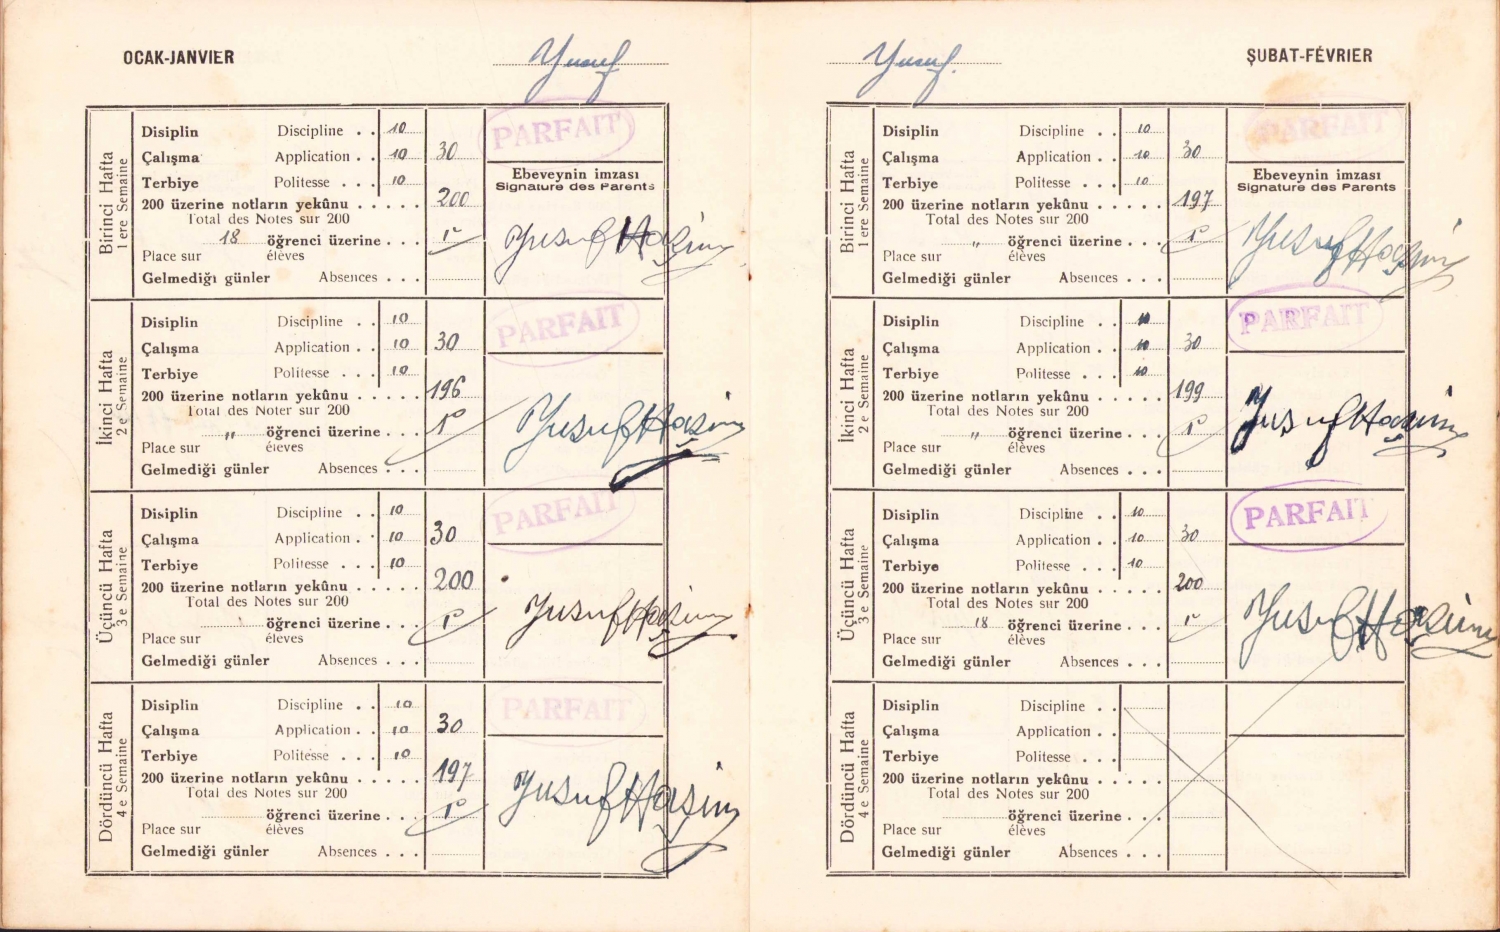 OCAK-JANVIER
Yusuf
Birinci Hafta
1 ere Semaine
Disiplin Discipline . . 10
Çalışma Application . . 10 30
Terbiye Politesse . . . 10
200 üzerine notların yekûnu . . . . . 200
Total des Notes sur 200
18 öğrenci üzerine . . . 1º
Place sur élèves
Gelmediği günler Absences . . .
PARFAIT
Ebeveynin imzası
Signature des Parents
Yusuf Haşim
İkinci Hafta
2 e Semaine
Disiplin Discipline . . 10
Çalışma Application . . 10 30
Terbiye Politesse . . . 10
200 üzerine notların yekûnu . . . . . 196
Total des Noter sur 200
" öğrenci üzerine . . . 1º
Place sur élèves
Gelmediği günler Absences . . .
PARFAIT
Yusuf Haşim
Üçüncü Hafta
3 e Semaine
Disiplin Discipline . . 10
Çalışma Application . . 10 30
Terbiye Politesse . . . 10
200 üzerine notların yekûnu . . . . . 200
Total des Notes sur 200
öğrenci üzerine . . . 1º
Place sur éleves
Gelmediği günler Absences . . .
PARFAIT
Yusuf Haşim
Dördüncü Hafta
4 e Semaine
Disiplin Discipline . . 10
Çalışma Application . . 10 30
Terbiye Politesse . . . 10
200 üzerine notların yekûnu . . . . . 197
Total des Notes sur 200
öğrenci üzerine . . . 1º
Place sur élèves
Gelmediği günler Absences . . .
PARFAIT
Yusuf Haşim
Yusuf.
ŞUBAT-FÉVRIER
Birinci Hafta
1 ere Semaine
Disiplin Discipline . . 10
Çalışma Application . . 10 30
Terbiye Politesse . . . 10
200 üzerine notların yekûnu . . . . . 197
Total des Notes sur 200
" öğrenci üzerine . . . 1º
Place sur élèves
Gelmediği günler Absences . . .
PARFAIT
Ebeveynin imzası
Signature des Parents
Yusuf Haşim
İkinci Hafta
2 e Semaine
Disiplin Discipline . . 10
Çalışma Application . . 10 30
Terbiye Politesse . . . 10
200 üzerine notların yekûnu . . . . . 199
Total des Notes sur 200
" öğrenci üzerine . . . 1º
Place sur élèves
Gelmediği günler Absences . . .
PARFAIT
Yusuf Haşim
Üçüncü Hafta
3 e Semaine
Disiplin Discipline . . 10
Çalışma Application . . 10 30
Terbiye Politesse . . . 10
200 üzerine notların yekûnu . . . . . 200
Total des Notes sur 200
18 öğrenci üzerine . . . 1º
Place sur élèves
Gelmediği günler Absences . . .
PARFAIT
Yusuf Haşim
Dördüncü Hafta
4 e Semaine
Disiplin Discipline . .
Çalışma Application . .
Terbiye Politesse . . .
200 üzerine notların yekûnu . . . . .
Total des Notes sur 200
öğrenci üzerine . . .
Place sur élèves
Gelmediği günler Absences . . .